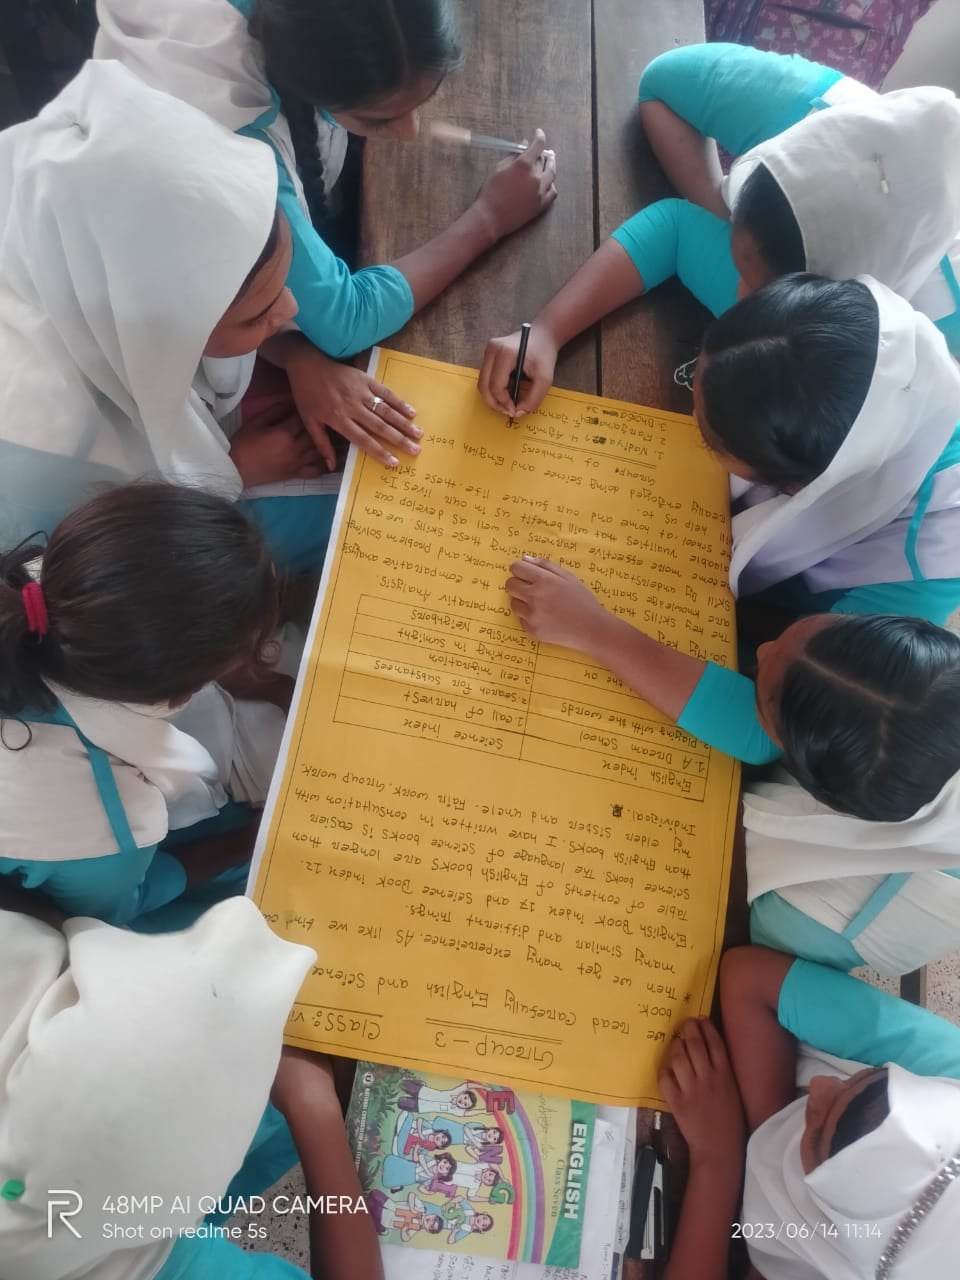 Group - 3
Class:
We read Carefully English and Science
book.
* Then we get many experience. AS like we find
many similar and different things.
English Book index 17 and Science Book index 12.
Table of contents of English books are longer than
Science books. The language of science books is easier
than English books. I have written in consultation with
my elder sister and uncle. Pair work. Group work.
Individual.
English index Science index
1. A Dream School 1. call of harvest
2. Playing with the words 2. search for substances
the 3. cell migration
4. cooking in sunlight
5. Invisible Neighbors
So. My key comparative Analysis.
The key skills that the comparative analysis
are knowledge sharing, and problem solving
skill by understanding and practicing these skills we can
become more effective learners as well as develop our
valuable qualities that will benefit us in our lives In
the school, at home and our future life. these skills
will help us to.
really enjoyed doing science and English book
Groups of members
1. Nadiya 4.
2. 5.
3.
ENGLISH
Class Seven
48MP AI QUAD CAMERA
Shot on realme 5s
2023/06/14 11:14